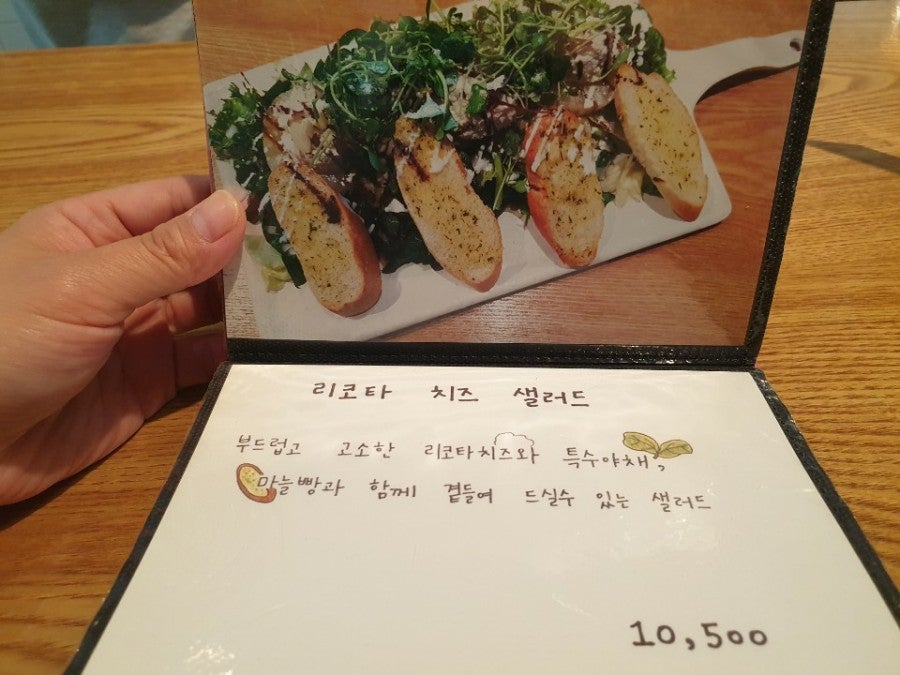 리코타 치즈 샐러드
부드럽고 고소한 리코타치즈와 특수야채,
마늘빵과 함께 곁들여 드실수 있는 샐러드
10,500